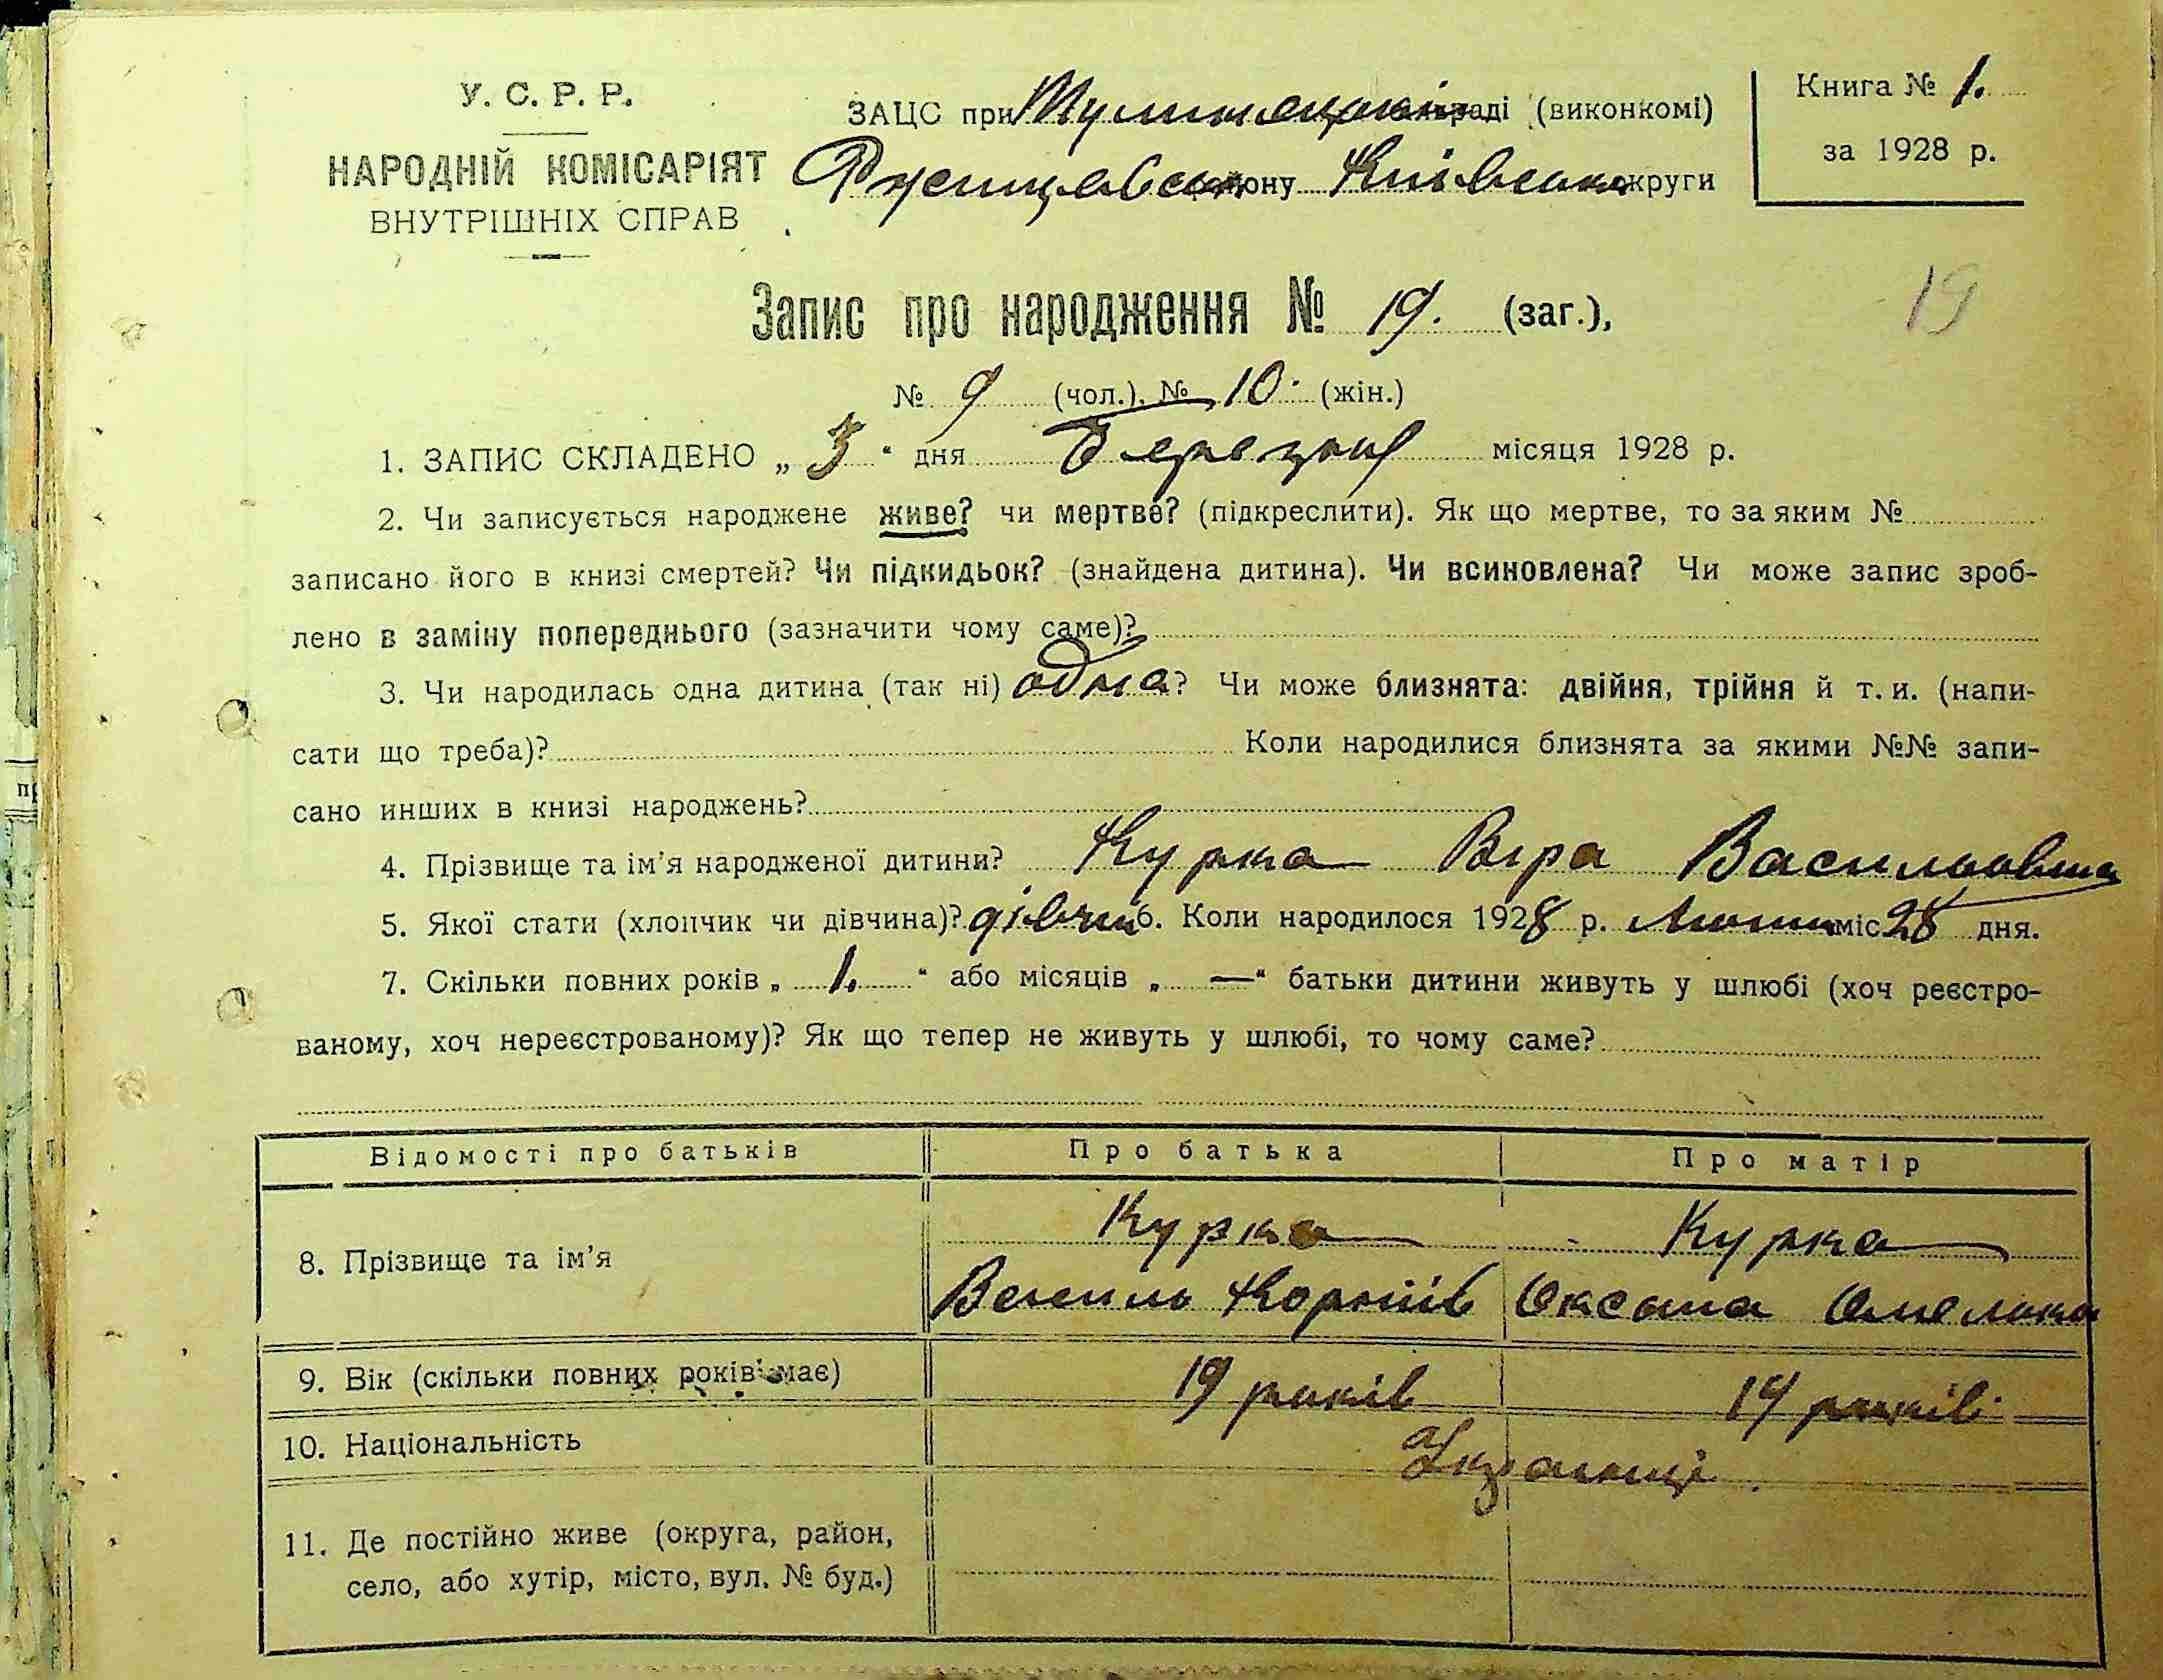 У. С. Р. Р.
НАРОДНІЙ КОМІСАРІЯТ
ВНУТРІШНІХ СПРАВ
ЗАЦС при раді (виконкомі)
Ржищевськ ону Київськ округи
Книга № 1.
за 1928 р.
19
Запис про народження № 19. (заг.),
№ 9 (чол.), № 10. (жін.)
1. ЗАПИС СКЛАДЕНО „ 3 " дня Березня місяця 1928 р.
2. Чи записується народжене живе? чи мертве? (підкреслити). Як що мертве, то за яким №
записано його в книзі смертей? Чи підкидьок? (знайдена дитина). Чи всиновлена? Чи може запис зроб-
лено в заміну попереднього (зазначити чому саме)?
3. Чи народилась одна дитина (так ні) одна? Чи може близнята: двійня, трійня й т. и. (напи-
сати що треба)? Коли народилися близнята за якими №№ запи-
сано инших в книзі народжень?
4. Прізвище та ім'я народженої дитини? Курка Віра Васильовна
5. Якої стати (хлопчик чи дівчина)? дівчин 6. Коли народилося 1928 р. міс 28 дня.
7. Скільки повних років „ 1. " або місяців „ — " батьки дитини живуть у шлюбі (хоч реєстро-
ваному, хоч нереєстрованому)? Як що тепер не живуть у шлюбі, то чому саме?
Відомості про батьків Про батька Про матір
8. Прізвище та ім'я
Курка Курка
Василь Корніїв Оксана Омелько
9. Вік (скільки повних років має) 19 років 19 років
10. Національність Українці
11. Де постійно живе (округа, район,
село, або хутір, місто, вул. № буд.)